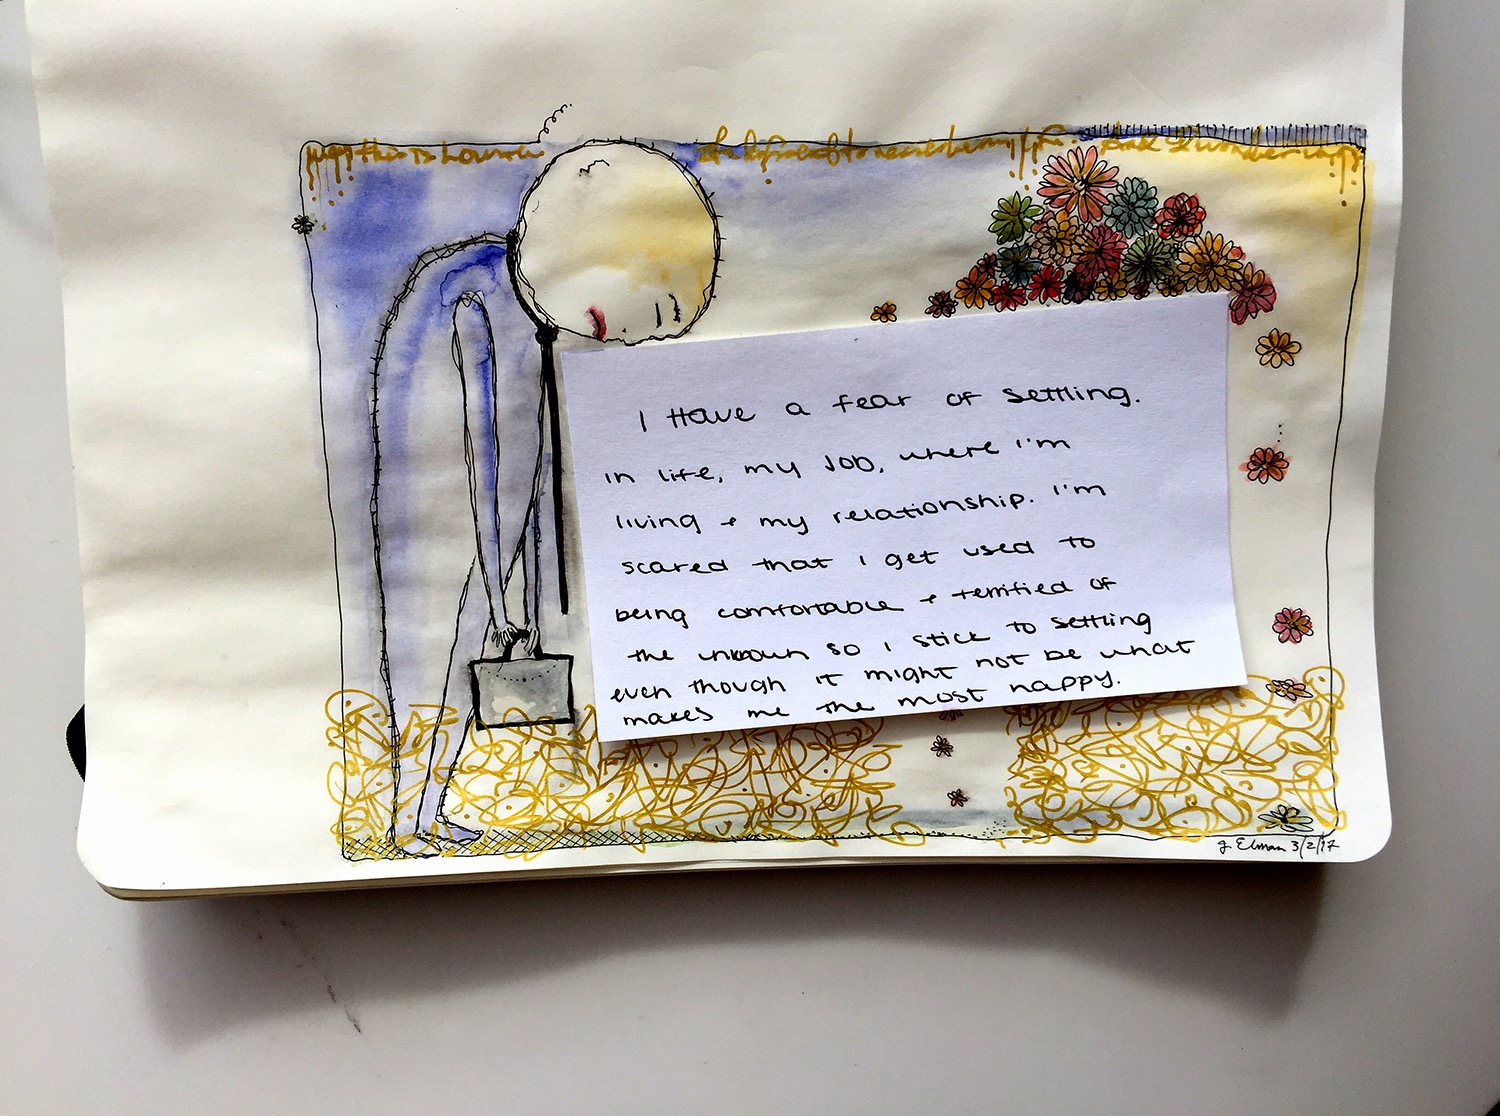 this is
I Have a fear of settling.
in life, my job, where I'm
living + my relationship. I'm
scared that I get used to
being comfortable + terrified of
the unknown so I stick to settling
even though it might not be what
makes me the most happy.
J. Elman 3/2/17